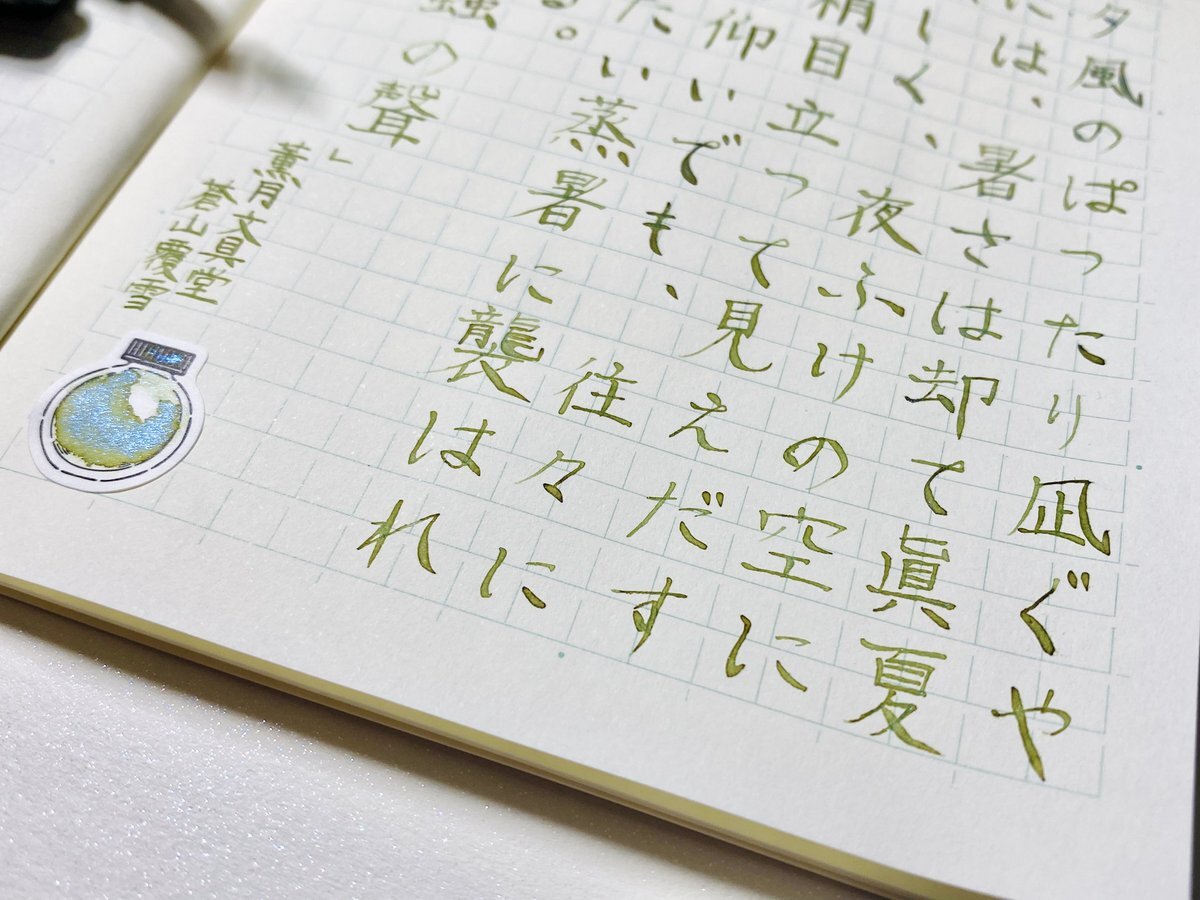 夕風のぱったり凪ぐや
には、暑さは却て眞夏
しく、夜ふけの空に
稍目立って見えだす
仰いでも、往々に
たい蒸暑に襲はれ
る。
蟲の聲」
薫月文具堂
蒼山覆雪